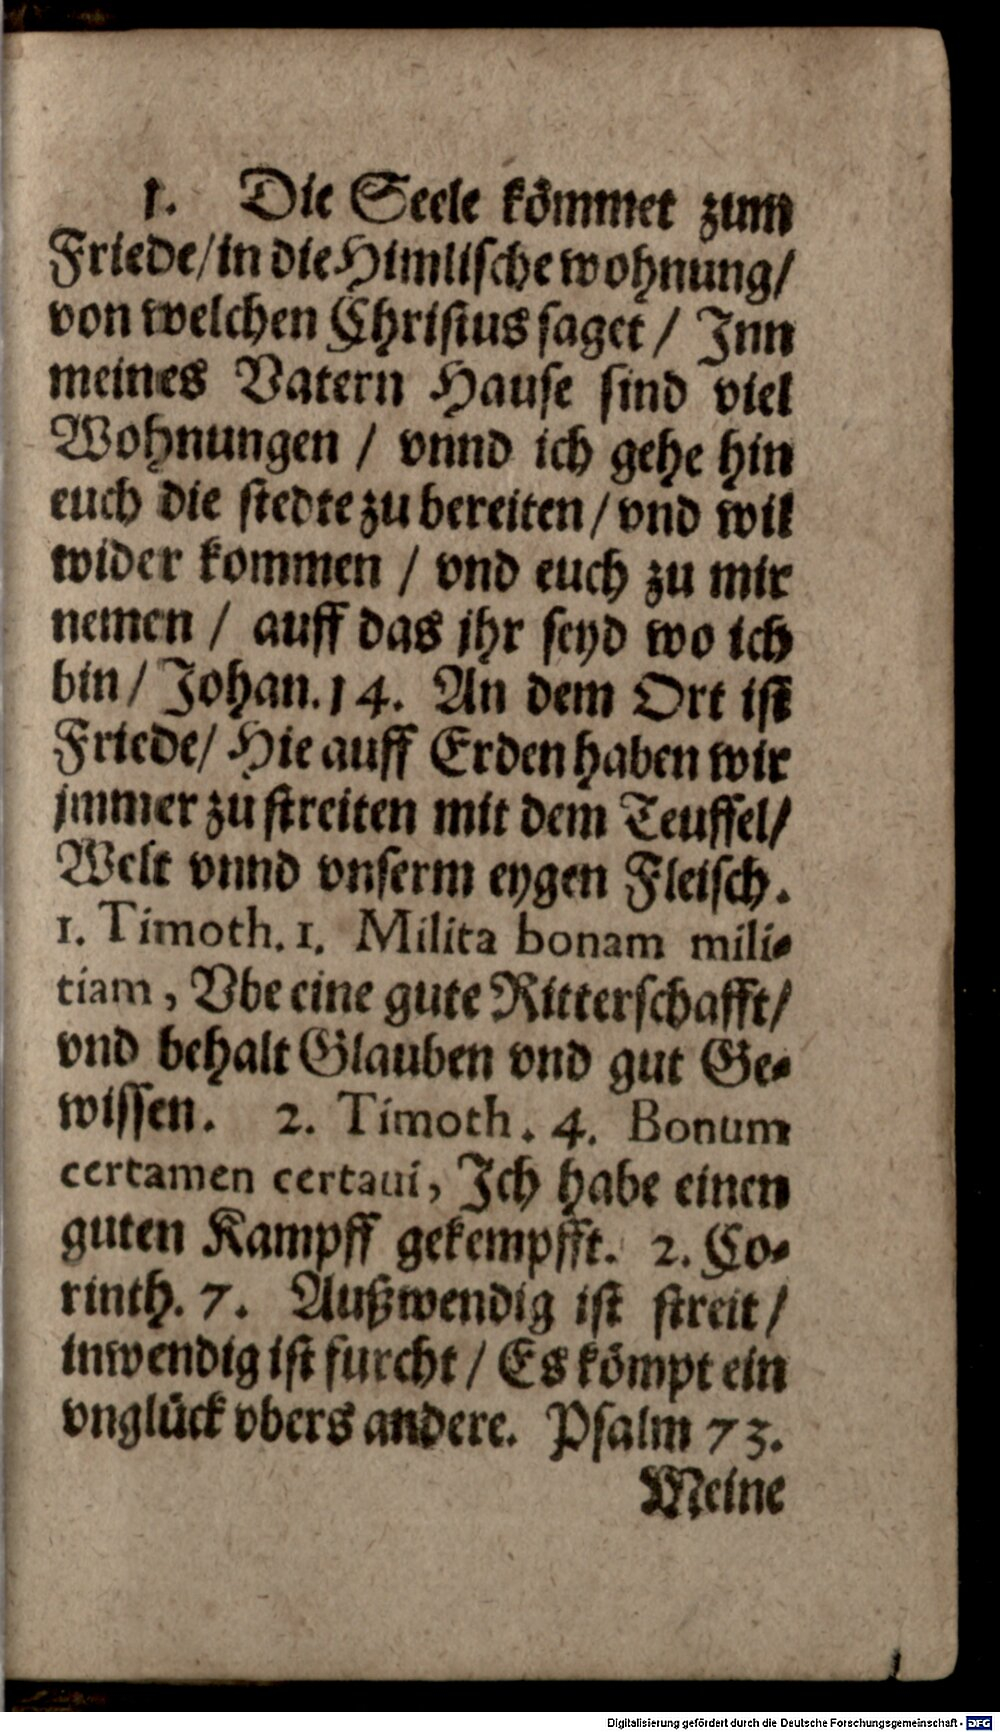 1. Die Seele kömmet zum
Friede/in die Himlische wohnung/
von welchen Christus saget / Inn
meines Vatern Hause sind viel
Wohnungen / vnnd ich gehe hin
euch die stedte zu bereiten / vnd wil
wider kommen / vnd euch zu mir
nemen / auff das jhr seyd wo ich
bin / Johan. 14. An dem Ort ist
Friede/ Hie auff Erden haben wir
jmmer zu streiten mit dem Teuffel/
Welt vnnd vnserm eygen Fleisch.
1. Timoth. 1. Milita bonam mili-
tiam, Vbe eine gute Ritterschafft/
vnd behalt Glauben vnd gut Ge-
wissen. 2. Timoth. 4. Bonum
certamen certaui, Ich habe einen
guten Kampff gekempfft. 2. Co-
rinth. 7. Außwendig ist streit /
inwendig ist furcht / Es kömpt ein
vnglück vbers andere. Psalm 73.
Meine
Digitalisierung gefördert durch die Deutsche Forschungsgemeinschaft - DFG